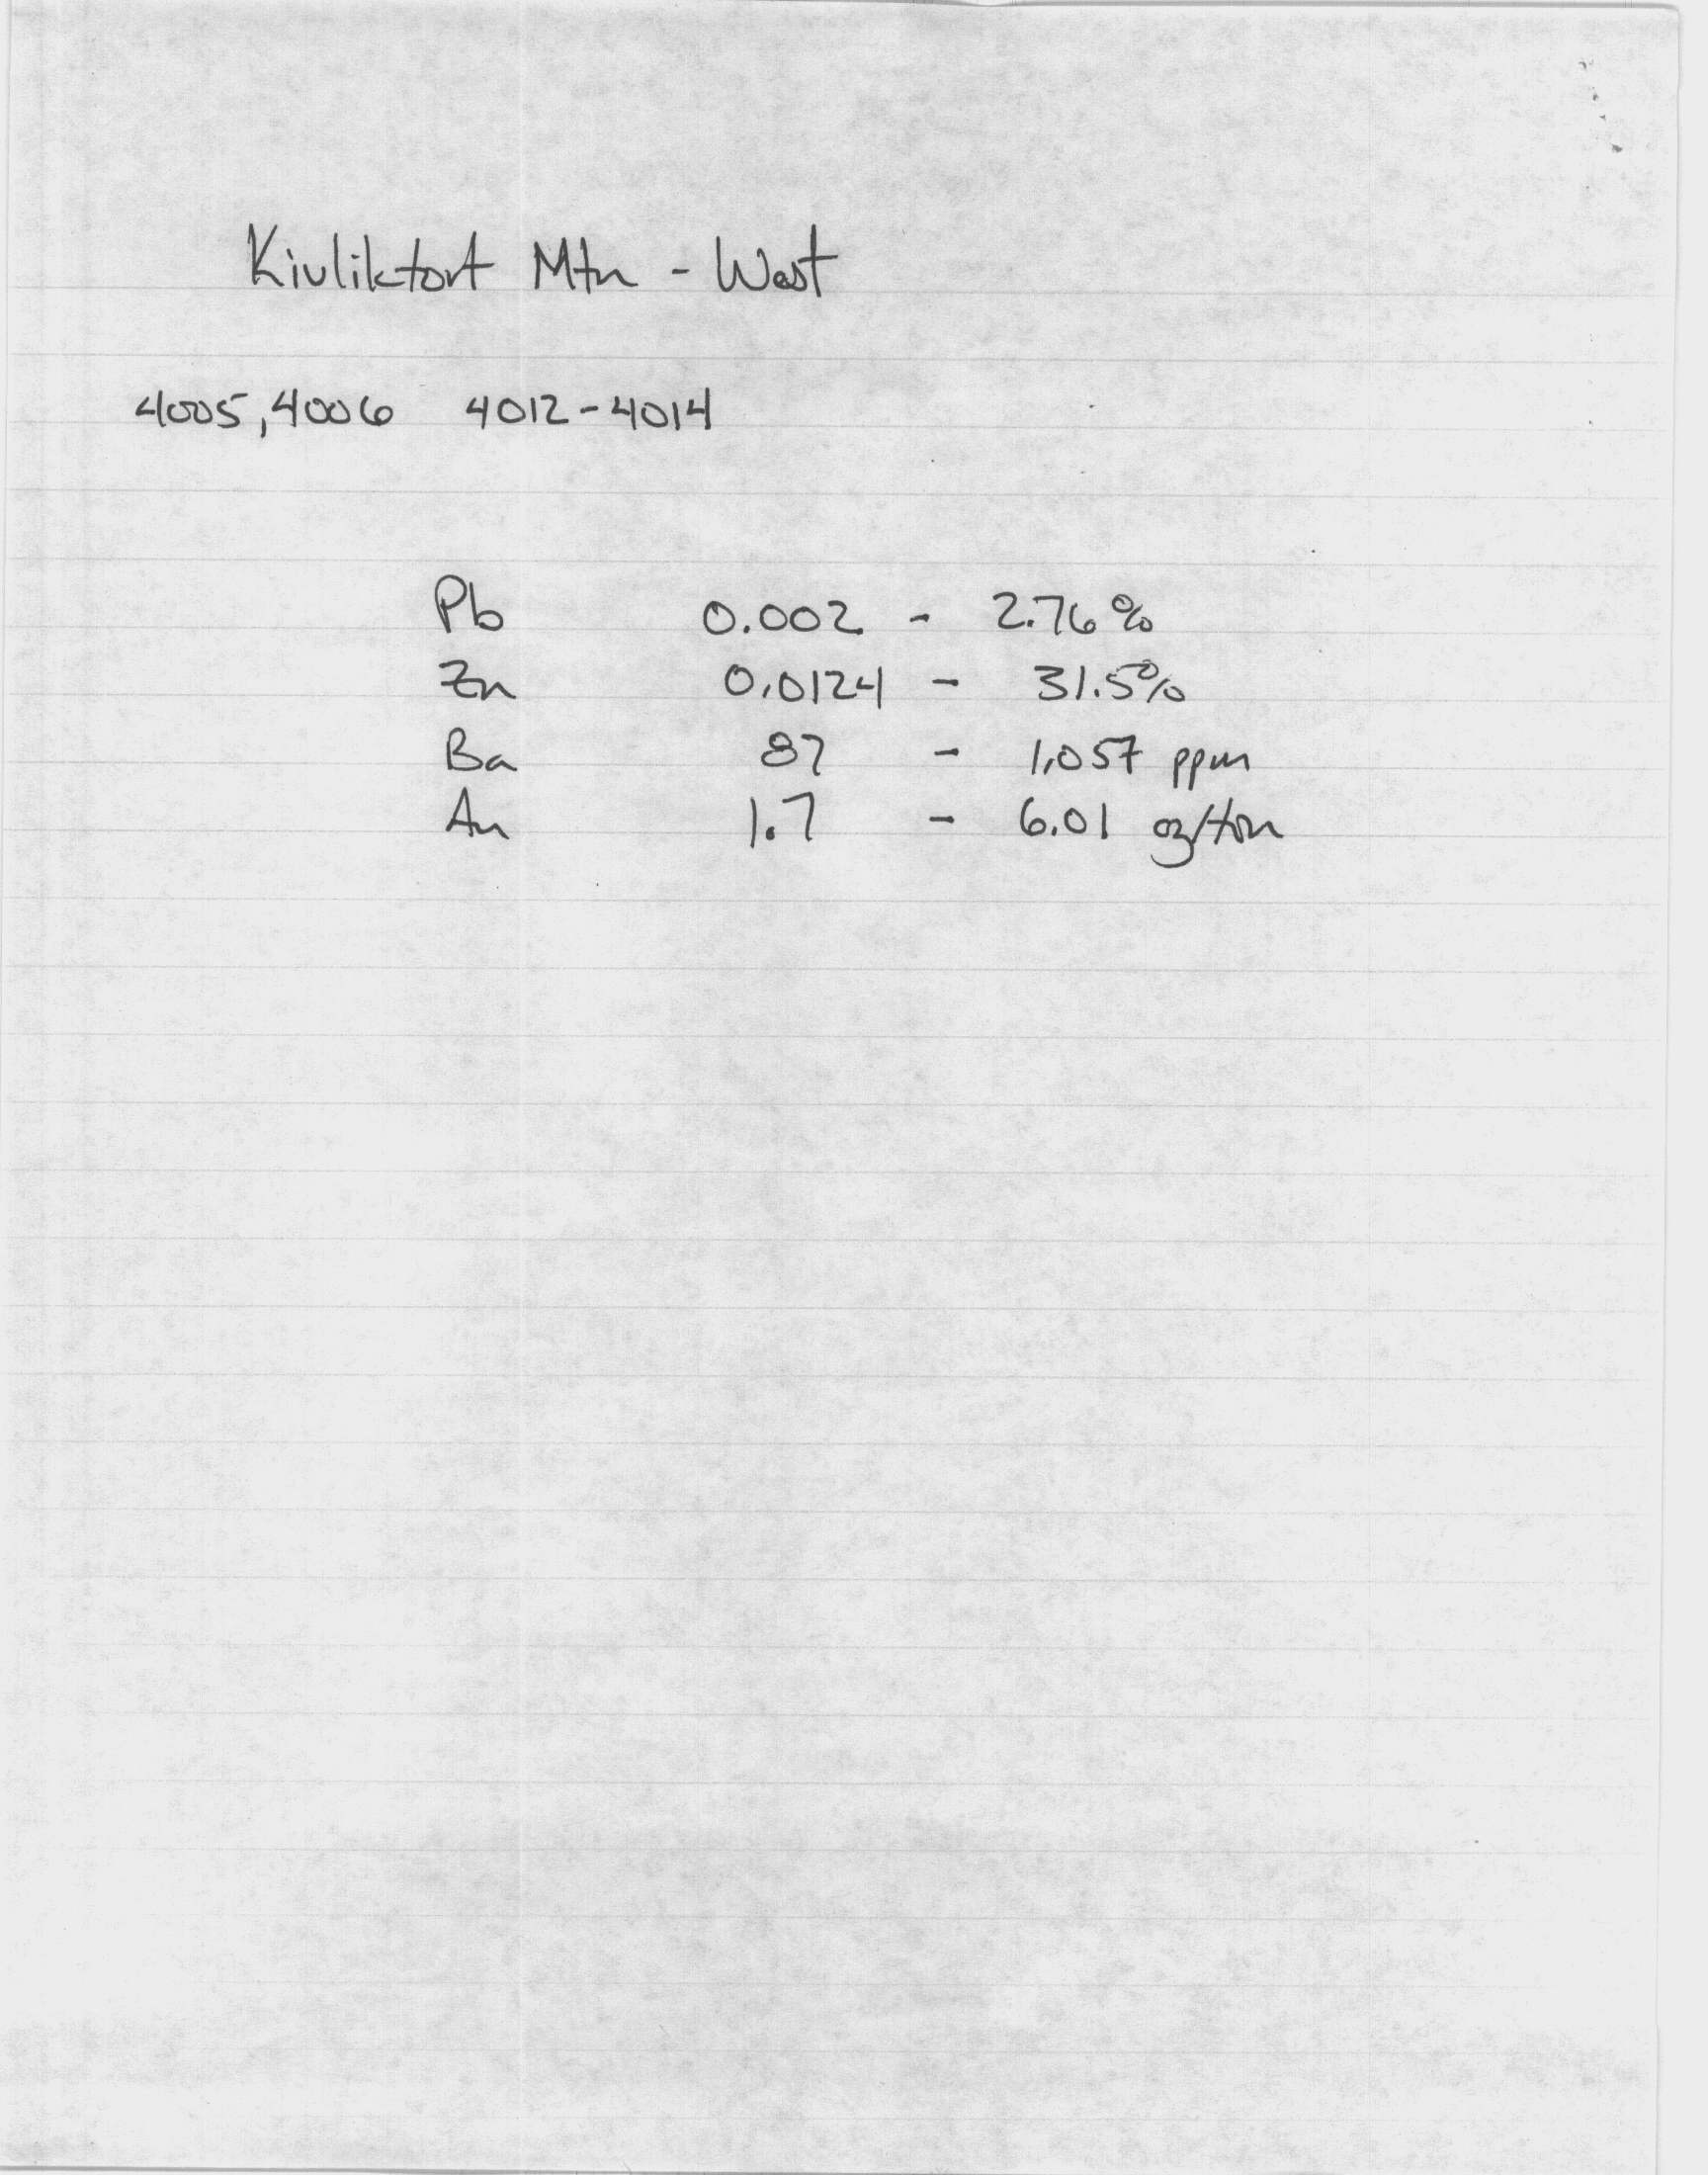 Kivliktort Mtn - West
4005, 4006 4012-4014
Pb 0.002 - 2.76%
Zn 0.0124 - 31.5%
Ba 87 - 1,057 ppm
Au 1.7 - 6.01 oz/ton